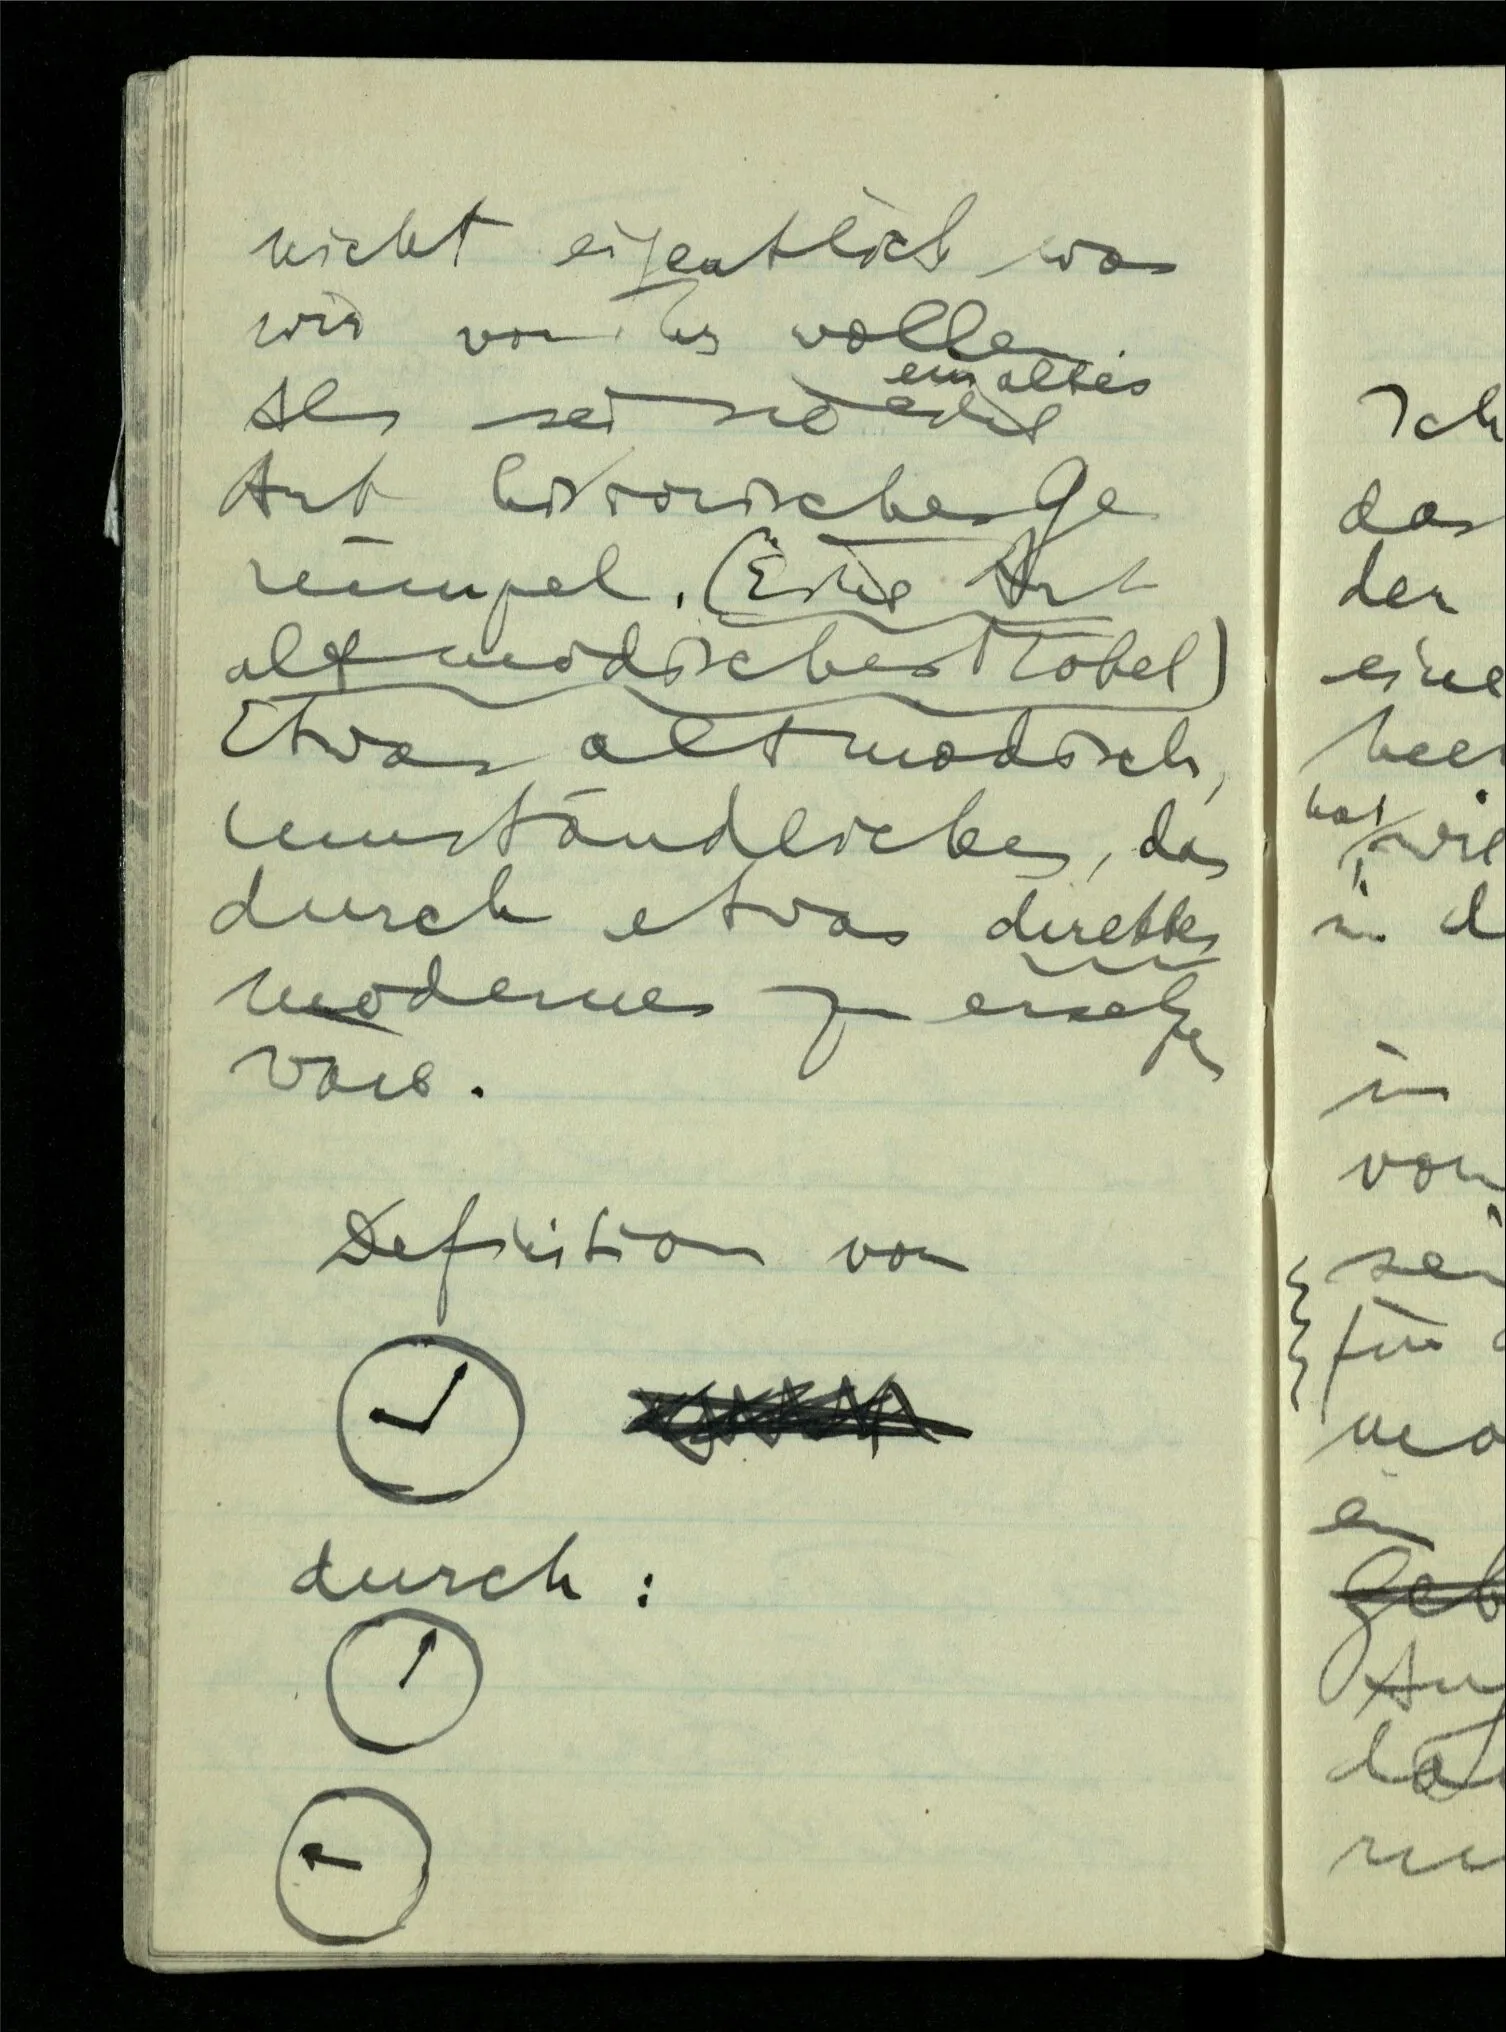 nicht eigentlich was
wir von ihr wollen.
ein altes
Als sei sie eine
Art historisches Ge
rümpel. (Eine Art
altmodisches Möbel)
Etwas altmodisch,
umständliches, das
durch etwas direktes
modernes zu ersetzen
wäre.
Definition von
durch :
Ich
das
der
eine
hat wie
in d
in
von
sei
für